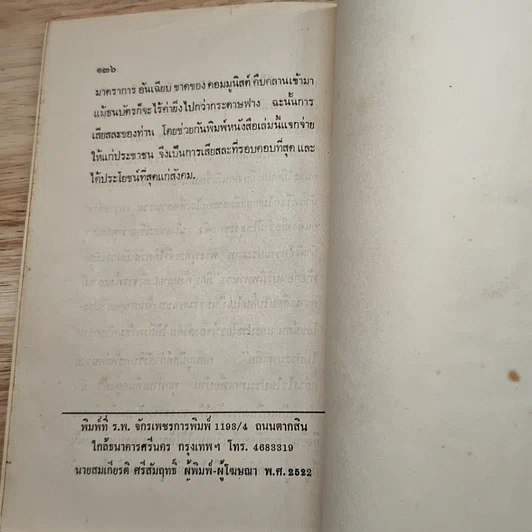 ๑๓๖
มาตราการ อันเฉียบ ขาดของ คอมมูนิสต์ คืบคลานเข้ามา
แม้ธนบัตรก็จะไร้ค่ายิ่งไปกว่ากระดาษฟาง ฉะนั้นการ
เสียสละของท่าน โดยช่วยกันพิมพ์หนังสือเล่มนี้แจกจ่าย
ให้แก่ประชาชน จึงเป็นการเสียสละที่รอบคอบที่สุด และ
ได้ประโยชน์ที่สุดแก่สังคม.
พิมพ์ที่ ร.พ. จักรเพชรการพิมพ์ 1193/4 ถนนตากสิน
ใกล้ธนาคารศรีนคร กรุงเทพฯ โทร. 4683319
นายสมเกียรติ ศรีสัมฤทธิ์ ผู้พิมพ์-ผู้โฆษณา พ.ศ. 2522